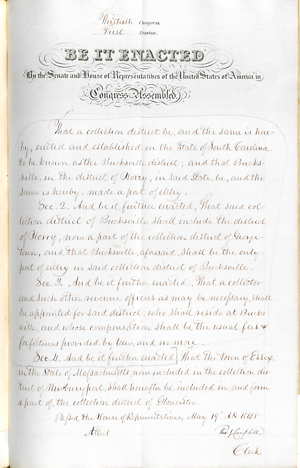 Thirtieth Congress
First Session.
BE IT ENACTED
By the Senate and House of Representatives of the United States of America in
Congress Assembled,
That a collection district be, and the same is here-
by, created and established in the State of South Carolina
to be known as the Bucksville district, and that Bucks-
ville, in the district of Horry, in said State, be, and the
same is hereby, made a port of entry.
Sec. 2. And be it further enacted, That said col-
lection district of Bucksville shall include the district
of Horry, now a part of the collection district of George-
town, and that Bucksville, aforesaid, shall be the only
port of entry in said collection district of Bucksville.
Sec. 3. And be it further enacted, That a collector
and such other revenue officers as may be necessary, shall
be appointed for said district, who shall reside at Bucks-
ville, and whose compensation shall be the usual fees &
forfeitures provided by law, and no more.
Sec. 4. And be it further enacted, That the town of Essex,
in the State of Massachusetts, now included in the collection dis-
trict of Newburyport, shall hereafter be included in and form
a part of, the collection district of Gloucester.
Passed the House of Representatives, May 19th, 1848
Attest
Clerk